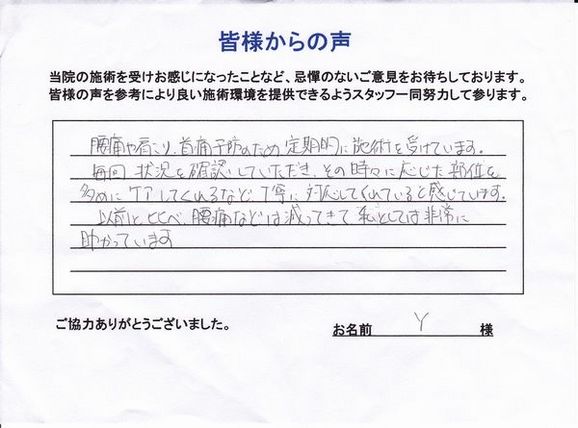 皆様からの声
当院の施術を受けお感じになったことなど、忌憚のないご意見をお待ちしております。
皆様の声を参考により良い施術環境を提供できるようスタッフ一同努力して参ります。
腰痛や肩こり、首痛予防のため定期的に施術を受けています。
毎回、状況を確認していただき、その時々に応じた部位を
多めにケアしてくれるなど、丁寧に対応してくれていると感じています。
以前と比べ、腰痛などは減ってきて私としては非常に
助かっています
ご協力ありがとうございました。
お名前 Y 様